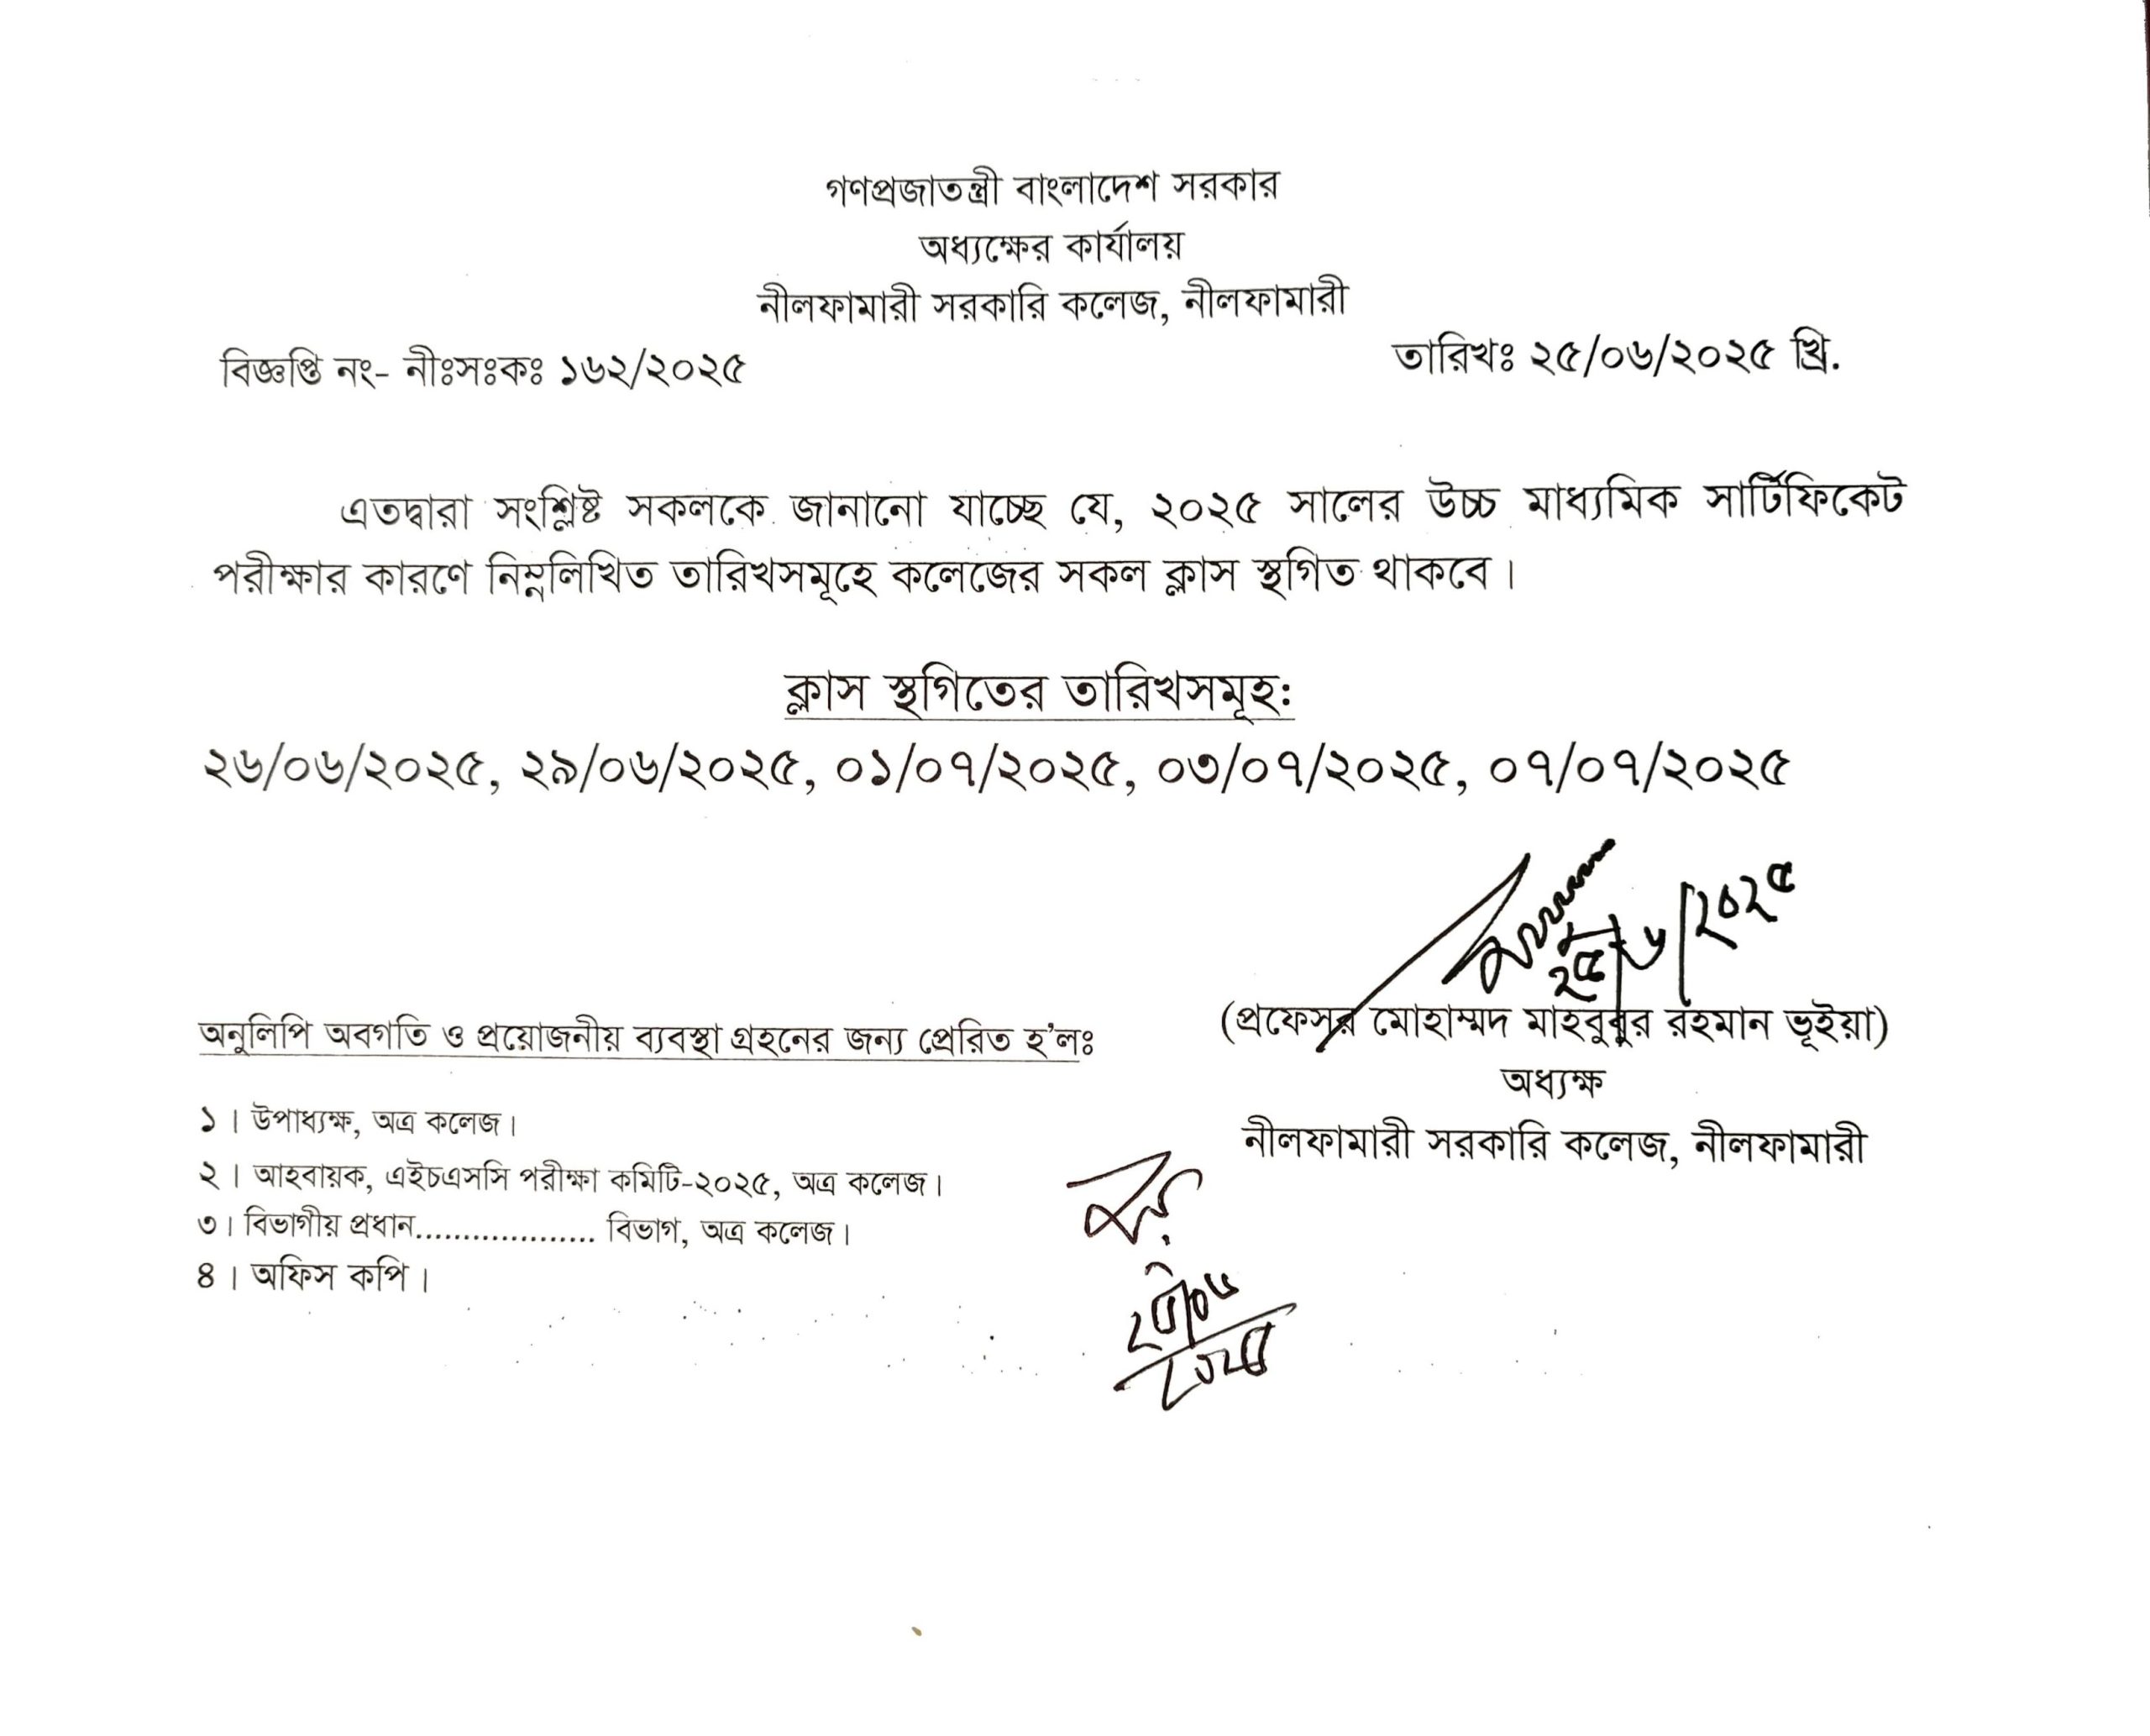 গণপ্রজাতন্ত্রী বাংলাদেশ সরকার
অধ্যক্ষের কার্যালয়
নীলফামারী সরকারি কলেজ, নীলফামারী
বিজ্ঞপ্তি নং- নীঃসঃকঃ ১৬২/২০২৫
তারিখঃ ২৫/০৬/২০২৫ খ্রি.
এতদ্বারা সংশ্লিষ্ট সকলকে জানানো যাচ্ছে যে, ২০২৫ সালের উচ্চ মাধ্যমিক সার্টিফিকেট
পরীক্ষার কারণে নিম্নলিখিত তারিখসমূহে কলেজের সকল ক্লাস স্থগিত থাকবে।
ক্লাস স্থগিতের তারিখসমূহ:
২৬/০৬/২০২৫, ২৯/০৬/২০২৫, ০১/০৭/২০২৫, ০৩/০৭/২০২৫, ০৭/০৭/২০২৫
২৫/৬/২০২৫
(প্রফেসর মোহাম্মদ মাহবুবুর রহমান ভূইয়া)
অধ্যক্ষ
নীলফামারী সরকারি কলেজ, নীলফামারী
অনুলিপি অবগতি ও প্রয়োজনীয় ব্যবস্থা গ্রহনের জন্য প্রেরিত হ'লঃ
১। উপাধ্যক্ষ, অত্র কলেজ।
২। আহবায়ক, এইচএসসি পরীক্ষা কমিটি-২০২৫, অত্র কলেজ।
৩। বিভাগীয় প্রধান................... বিভাগ, অত্র কলেজ।
৪। অফিস কপি।